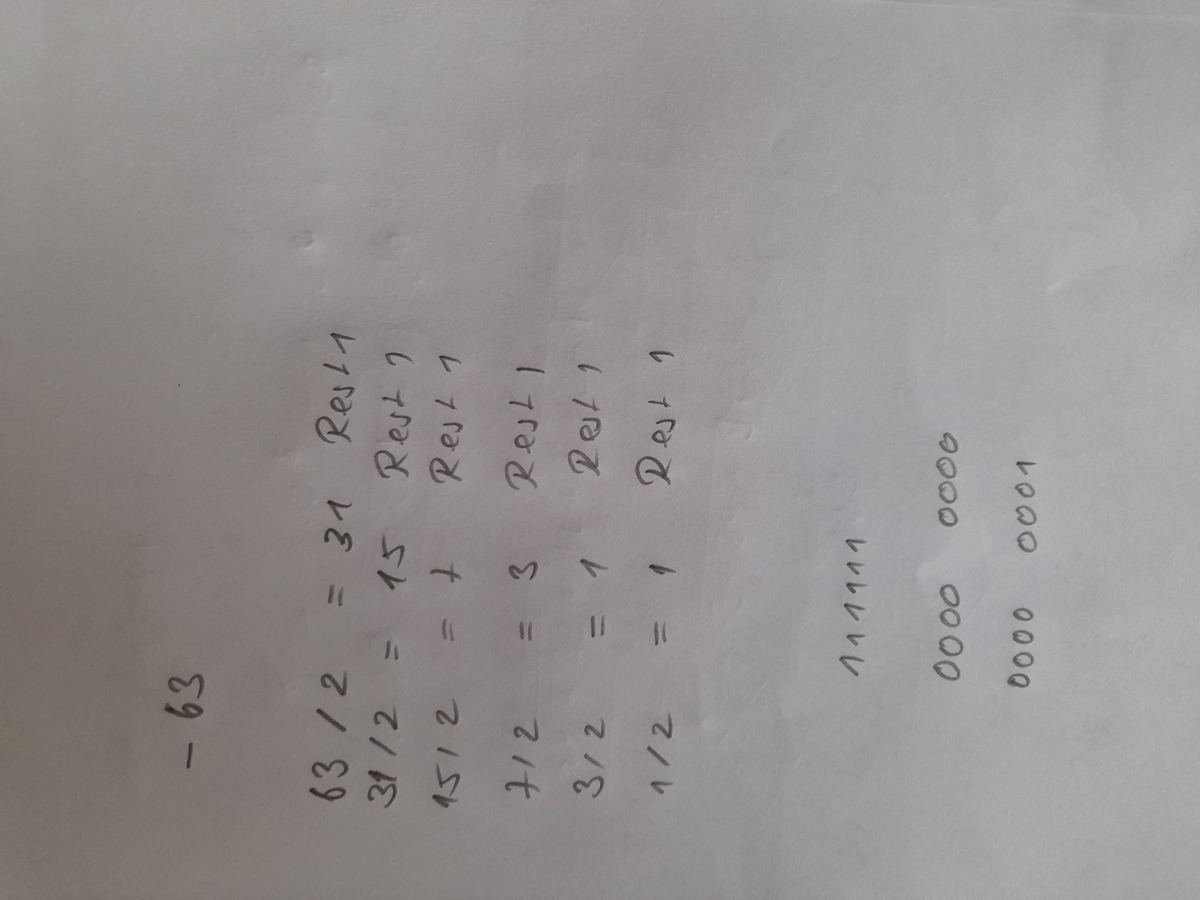 - 63
63 / 2 = 31 Rest 1
31 / 2 = 15 Rest 1
15 / 2 = 7 Rest 1
7 / 2 = 3 Rest 1
3 / 2 = 1 Rest 1
1 / 2 = 1 Rest 1
111111
0000 0000
0000 0001